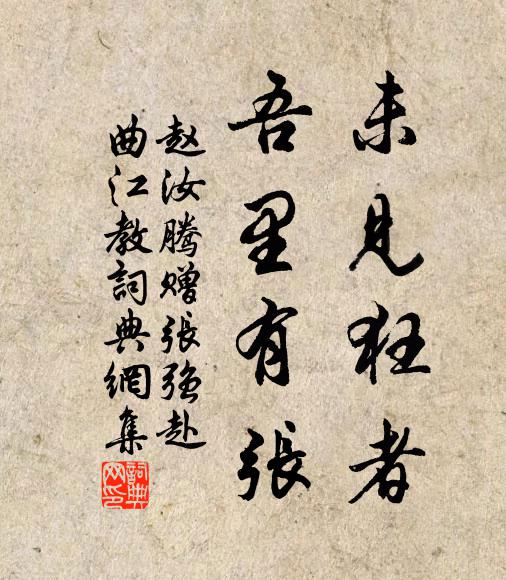 未見狂者
吾里有張
赵汝腾赠張强赴
曲江教詞典網集
詞典
网印